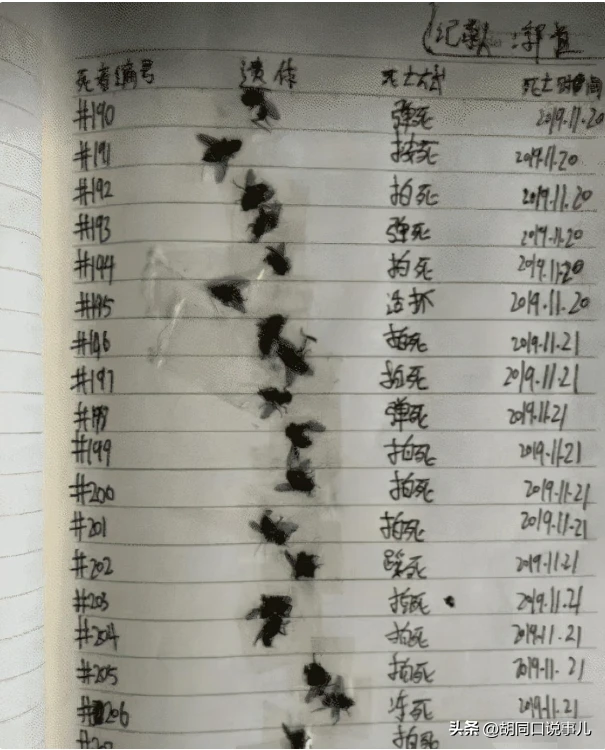 (记录人:郭
死者编号 遗体 死亡方式 死亡时间
#190 弹死 2019.11.20
#191 按死 2019.11.20
#192 拍死 2019.11.20
#193 弹死 2019.11.20
#194 拍死 2019.11.20
#195 活抓 2019.11.20
#196 拍死 2019.11.21
#197 拍死 2019.11.21
#198 弹死 2019.11.21
#199 拍死 2019.11.21
#200 拍死 2019.11.21
#201 拍死 2019.11.21
#202 踩死 2019.11.21
#203 拍死 2019.11.21
#204 拍死 2019.11.21
#205 拍死 2019.11.21
#206 冻死 2019.11.21
#207 拍死
头条 @胡同口说事儿